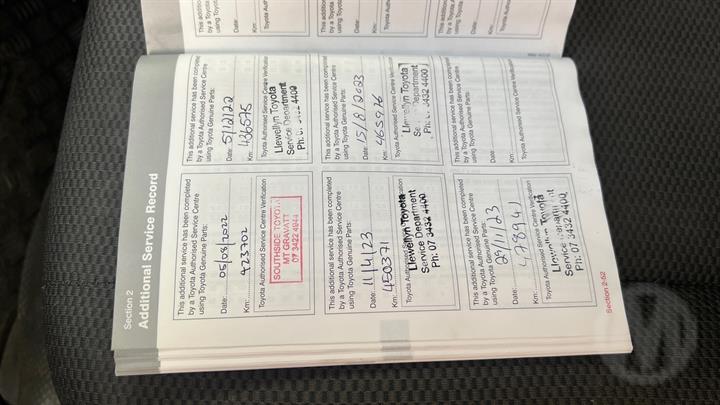 Section 2
Additional Service Record
This additional service has been completed
by a Toyota Authorised Service Centre
using Toyota Genuine Parts:
Date: 05/08/2022
Km: 423702
Toyota Authorised Service Centre Verification
SOUTHSIDE TOYOTA
MT GRAVATT
07 3422 4944
This additional service has been completed
by a Toyota Authorised Service Centre
using Toyota Genuine Parts:
Date: 5/12/22
Km: 436575
Toyota Authorised Service Centre Verification
Llewellyn Toyota
Service Department
Ph: 3432 4400
This additional service has been completed
by a Toyota Authorised Service Centre
using Toyota Genuine Parts:
Date: 11/4/23
Km: 450371
Toyota Authorised
Llewellyn Toyota
Service Department
Ph: 07 3432 4400
This additional service has been completed
by a Toyota Authorised Service Centre
using Toyota Genuine Parts:
Date: 15/8/2023
Km: 465926
Toyota Authorised Service Centre Verification
Llewellyn Toyota
Department
Ph: 3432 4400
This additional service has been completed
by a Toyota Authorised Service Centre
using Toyota Genuine Parts:
29/11/23
Date:
478941
Km:
Toyota Authorised Service Centre Verification
Toyota
Service
Ph: 07 3432 4400
This additional service has been completed
by a Toyota Authorised Service Centre
using Toyota Genuine Parts:
Date:
Km:
Toyota Authorised Service Centre Verification
Section 2-52